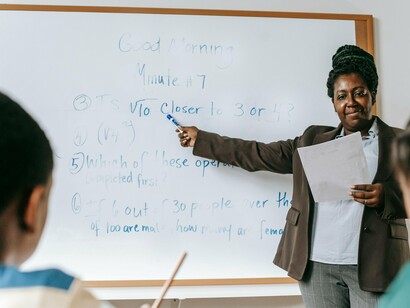 Good Morning
Minute #7
③ Is √10 Closer to 3 or 4?
④ (√9)
⑤ Which of these oper
completed first?
⑥ If 6 out of 30 people over th
of 100 are male how many are female